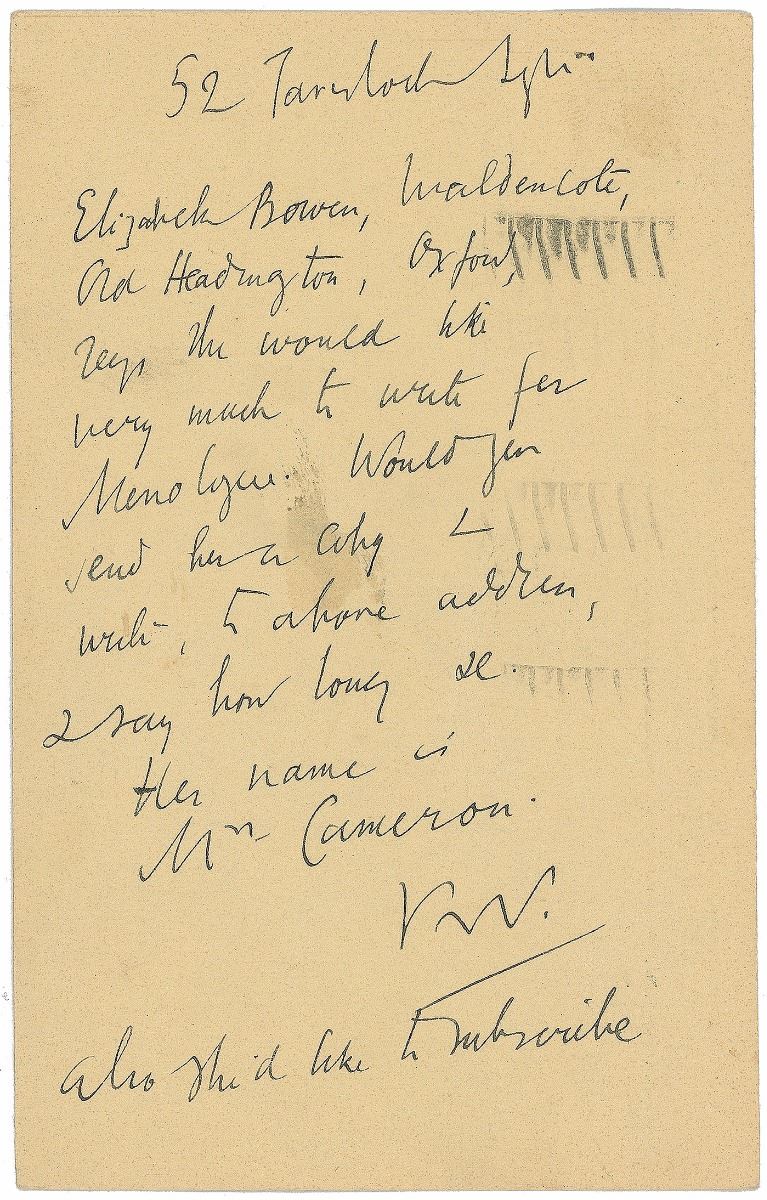 52 Tavistock Sqre
Elizabeth Bowen, Waldencote,
Old Headington, Oxford,
says she would like
very much to write for
Monologue. Would you
send her a copy &
write, to above address,
& say how long &c.
Her name is
Mrs Cameron.
V.W.
Also she'd like to subscribe